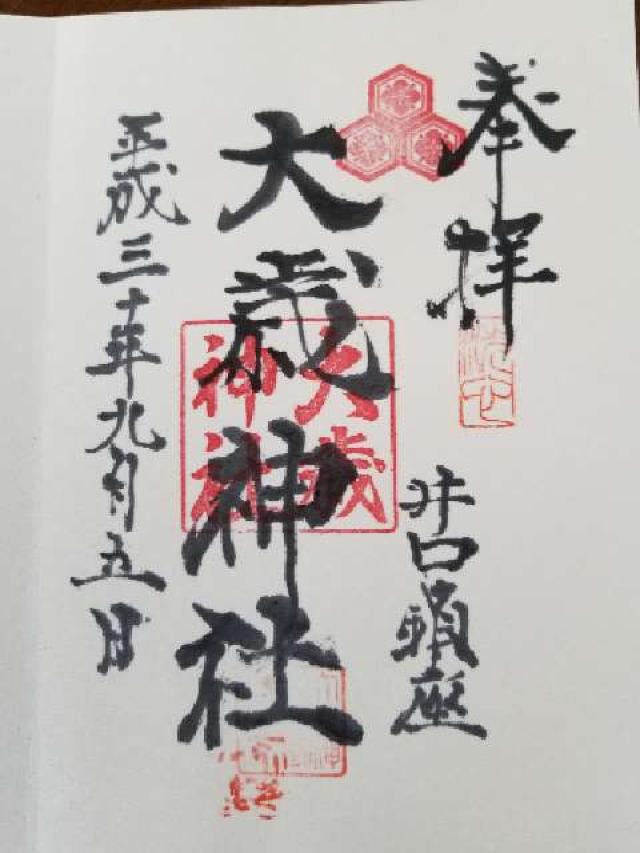 奉拝
井口
座
大歳神社
大歳
神社
平成三十年九月五日